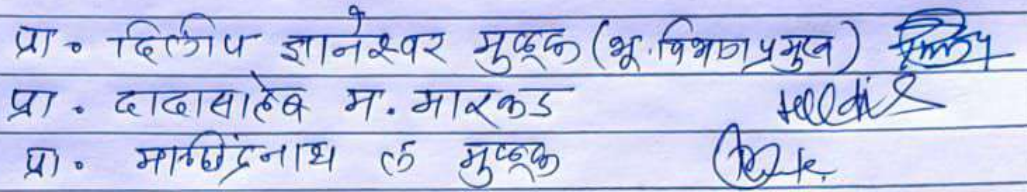 प्रा. दिलीप ज्ञानेश्वर मुळूक (भू. विभाग प्रमुख)
प्रा. दादासाहेब म. मारकड
प्रा. मच्छिंद्रनाथ ल मुळूक